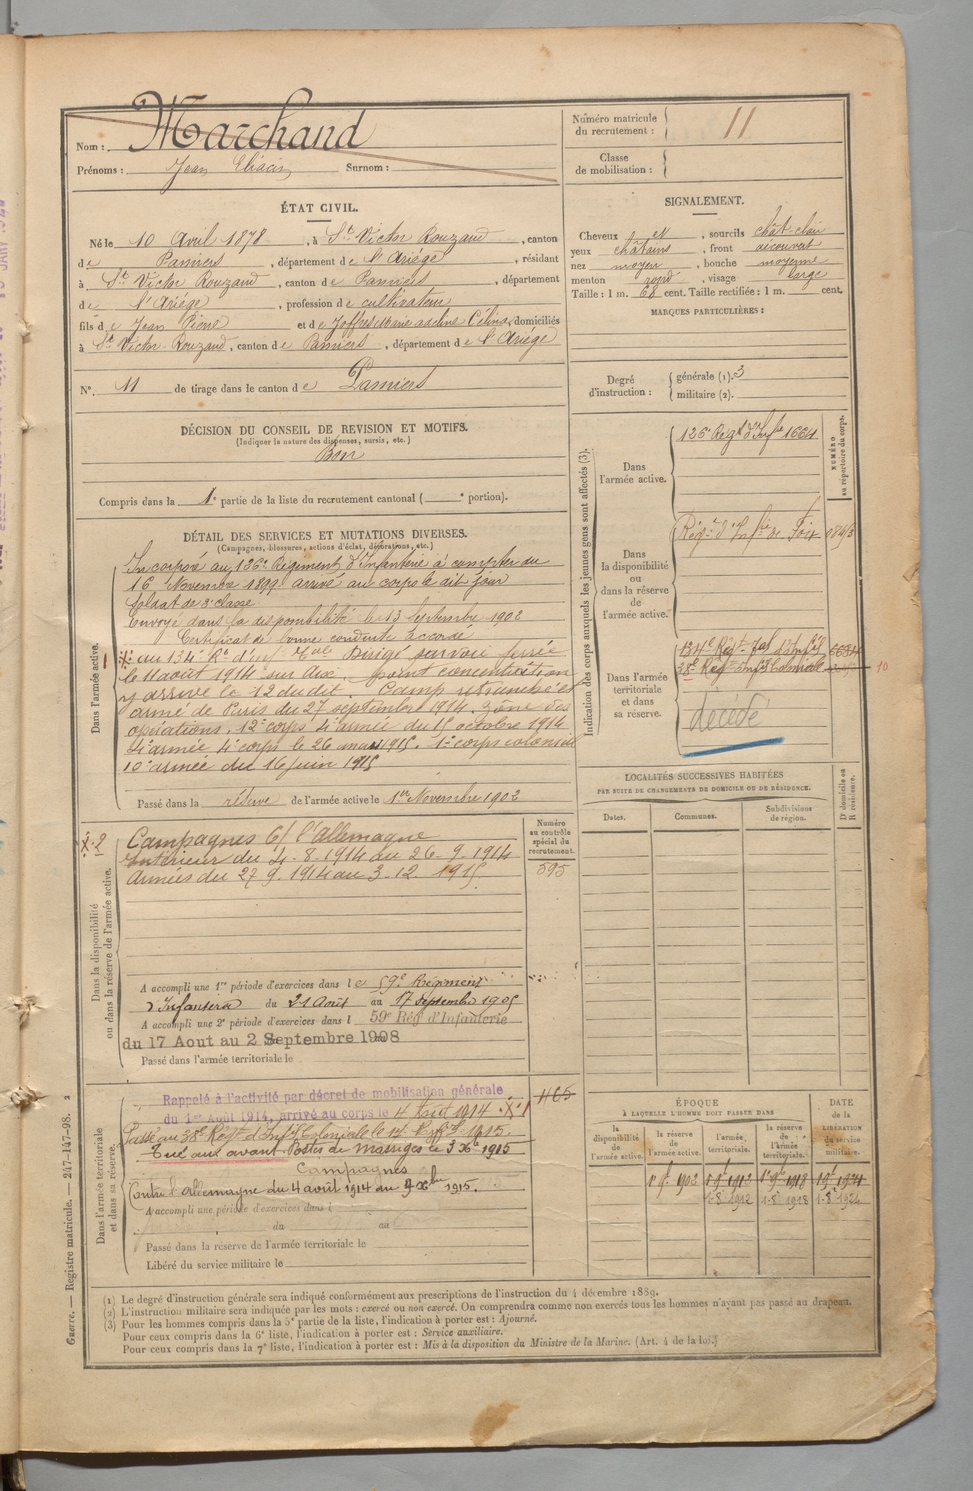 Nom : Marchand
Prénoms : Jean Surnom :
Numéro matricule du recrutement : 11
Classe de mobilisation :
ÉTAT CIVIL.
Né le 10 Avril 1878, à St Victor Rouzaud, canton
de Pamiers, département de l'Ariége, résidant
à St Victor Rouzaud, canton de Pamiers, département
de l'Ariége, profession de cultivateur
fils de Jean Pierre et de Joffres Marie Célina, domiciliés
à St Victor Rouzaud, canton de Pamiers, département de l'Ariége
N° 11 de tirage dans le canton de Pamiers
SIGNALEMENT.
Cheveux et, sourcils chât-clair
yeux châtains, front découvert
nez moyen, bouche moyenne
menton rond, visage large
Taille : 1 m. 68 cent. Taille rectifiée : 1 m. cent.
MARQUES PARTICULIÈRES :
Degré d'instruction : générale (1). 3
militaire (2).
DÉCISION DU CONSEIL DE REVISION ET MOTIFS.
(Indiquer la nature des dispenses, sursis, etc.)
Bon
Compris dans la 1e partie de la liste du recrutement cantonal ( e portion).
DÉTAIL DES SERVICES ET MUTATIONS DIVERSES.
(Campagnes, blessures, actions d'éclat, décorations, etc.)
Dans l'armée active.
Incorporé au 126e Régiment d'Infanterie à compter du
16 Novembre 1899 arrivé au corps le dit jour
Soldat de 2e classe
Envoyé dans la disponibilité le 13 Septembre 1902
Certificat de bonne conduite accordé
1 au 134e Rt d'inf Tale Dirigé sur voie ferrée
le 11 août 1914 sur dix. point concentration
y arrivé le 12 du dit. Camp retranché et
armé de Paris du 27 septembre 1914. Zone des
opérations. 12e corps 4e armée du 15 octobre 1914
4e armée 4e corps le 26 mars 1915. 1e corps colonial
10e armée du 16 juin 1915
Passé dans la réserve de l'armée active le 1er Novembre 1902
Indication des corps auxquels les jeunes gens sont affectés (3).
NUMÉRO au répertoire du corps.
Dans l'armée active. 126e Regt d'Infie 1664
Dans la disponibilité ou dans la réserve de l'armée active. Régt d'Infie de Foix
Dans l'armée territoriale et dans sa réserve. 134e Régt Tal d'Infie 6634
38e Regt Inf Coloniale 10
décédé
LOCALITÉS SUCCESSIVES HABITÉES
PAR SUITE DE CHANGEMENTS DE DOMICILE OU DE RÉSIDENCE.
Dates. Communes. Subdivisions de région. D' domicile ou R résidence.
Dans la disponibilité ou dans la réserve de l'armée active.
Numéro au contrôle spécial du recrutement.
595
2 Campagnes C/ l'Allemagne
Intérieur du 4-8-1914 au 26-9-1914
Armées du 27 9 1914 au 3-12 1915
A accompli une 1re période d'exercices dans le 59e Régiment
d'Infanterie du 21 Aout au 17 Septembre 1905
A accompli une 2e période d'exercices dans l 59e Rég d'Infanterie
du 17 Aout au 2 Septembre 1908
Passé dans l'armée territoriale le
Dans l'armée territoriale et dans sa réserve.
Rappelé à l'activité par décret de mobilisation générale
du 1er Août 1914, arrivé au corps le 4 Août 1914 1
1165
Passé au 38e Régt d'Infie Coloniale le 14 1915.
Tué aux avant-Postes de Massiges le 3 Xbre 1915
Campagnes
Contre l'Allemagne du 4 août 1914 au 3 Xbre 1915.
A accompli une période d'exercices dans l
du au
Passé dans la réserve de l'armée territoriale le
Libéré du service militaire le
ÉPOQUE
À LAQUELLE L'HOMME DOIT PASSER DANS
la disponibilité de l'armée active. la réserve de l'armée active. l'armée territoriale. la réserve de l'armée territoriale. DATE de la LIBÉRATION du service militaire.
1er 9bre 1902 1er 9bre 1912 1er 9bre 1918 1er 9bre 1924
1-8bre 1912 1-8bre 1918 1-8bre 1924
(1) Le degré d'instruction générale sera indiqué conformément aux prescriptions de l'instruction du 4 décembre 1889.
(2) L'instruction militaire sera indiquée par les mots : exercé ou non exercé. On comprendra comme non exercés tous les hommes n'ayant pas passé au drapeau.
(3) Pour les hommes compris dans la 5e partie de la liste, l'indication à porter est : Ajourné.
Pour ceux compris dans la 6e liste, l'indication à porter est : Service auxiliaire.
Pour ceux compris dans la 7e liste, l'indication à porter est : Mis à la disposition du Ministre de la Marine. (Art. 4 de la loi.)
Guerre. — Registre matricule. — 247-147-98. 2